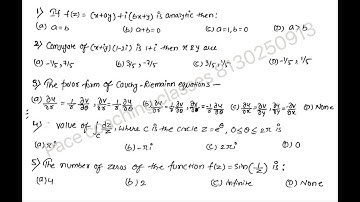 1) If f(z) = (x+ay)+i(bx+y) is analytic then:
(a) a=b (b) a+b=0 (c) a=1, b=0 (d) a>b
2) Conjugate of (x+iy)(1-2i) is 1+i then x & y are
(a) -1/5, 7/5 (b) 3/5, -7/5 (c) 3/5, 1/5 (D) -1/5, 1/5
3) The polar form of Cauchy-Riemann equations —
(a) ∂u/∂r = 1/r ∂v/∂θ, ∂v/∂r = -1/r ∂u/∂θ (b) (c) (D) None
4) value of ∫c dz/z, where C is the circle z=e^iθ, 0≤θ≤2π is
(a) πi (b) -πi (c) 2πi (D) 0
5) The number of zeros of the function f(z)= Sin(1/z) is:
(a) 4 (b) 2 (c) Infinite (D) None
Pace Coaching classes 8130250913